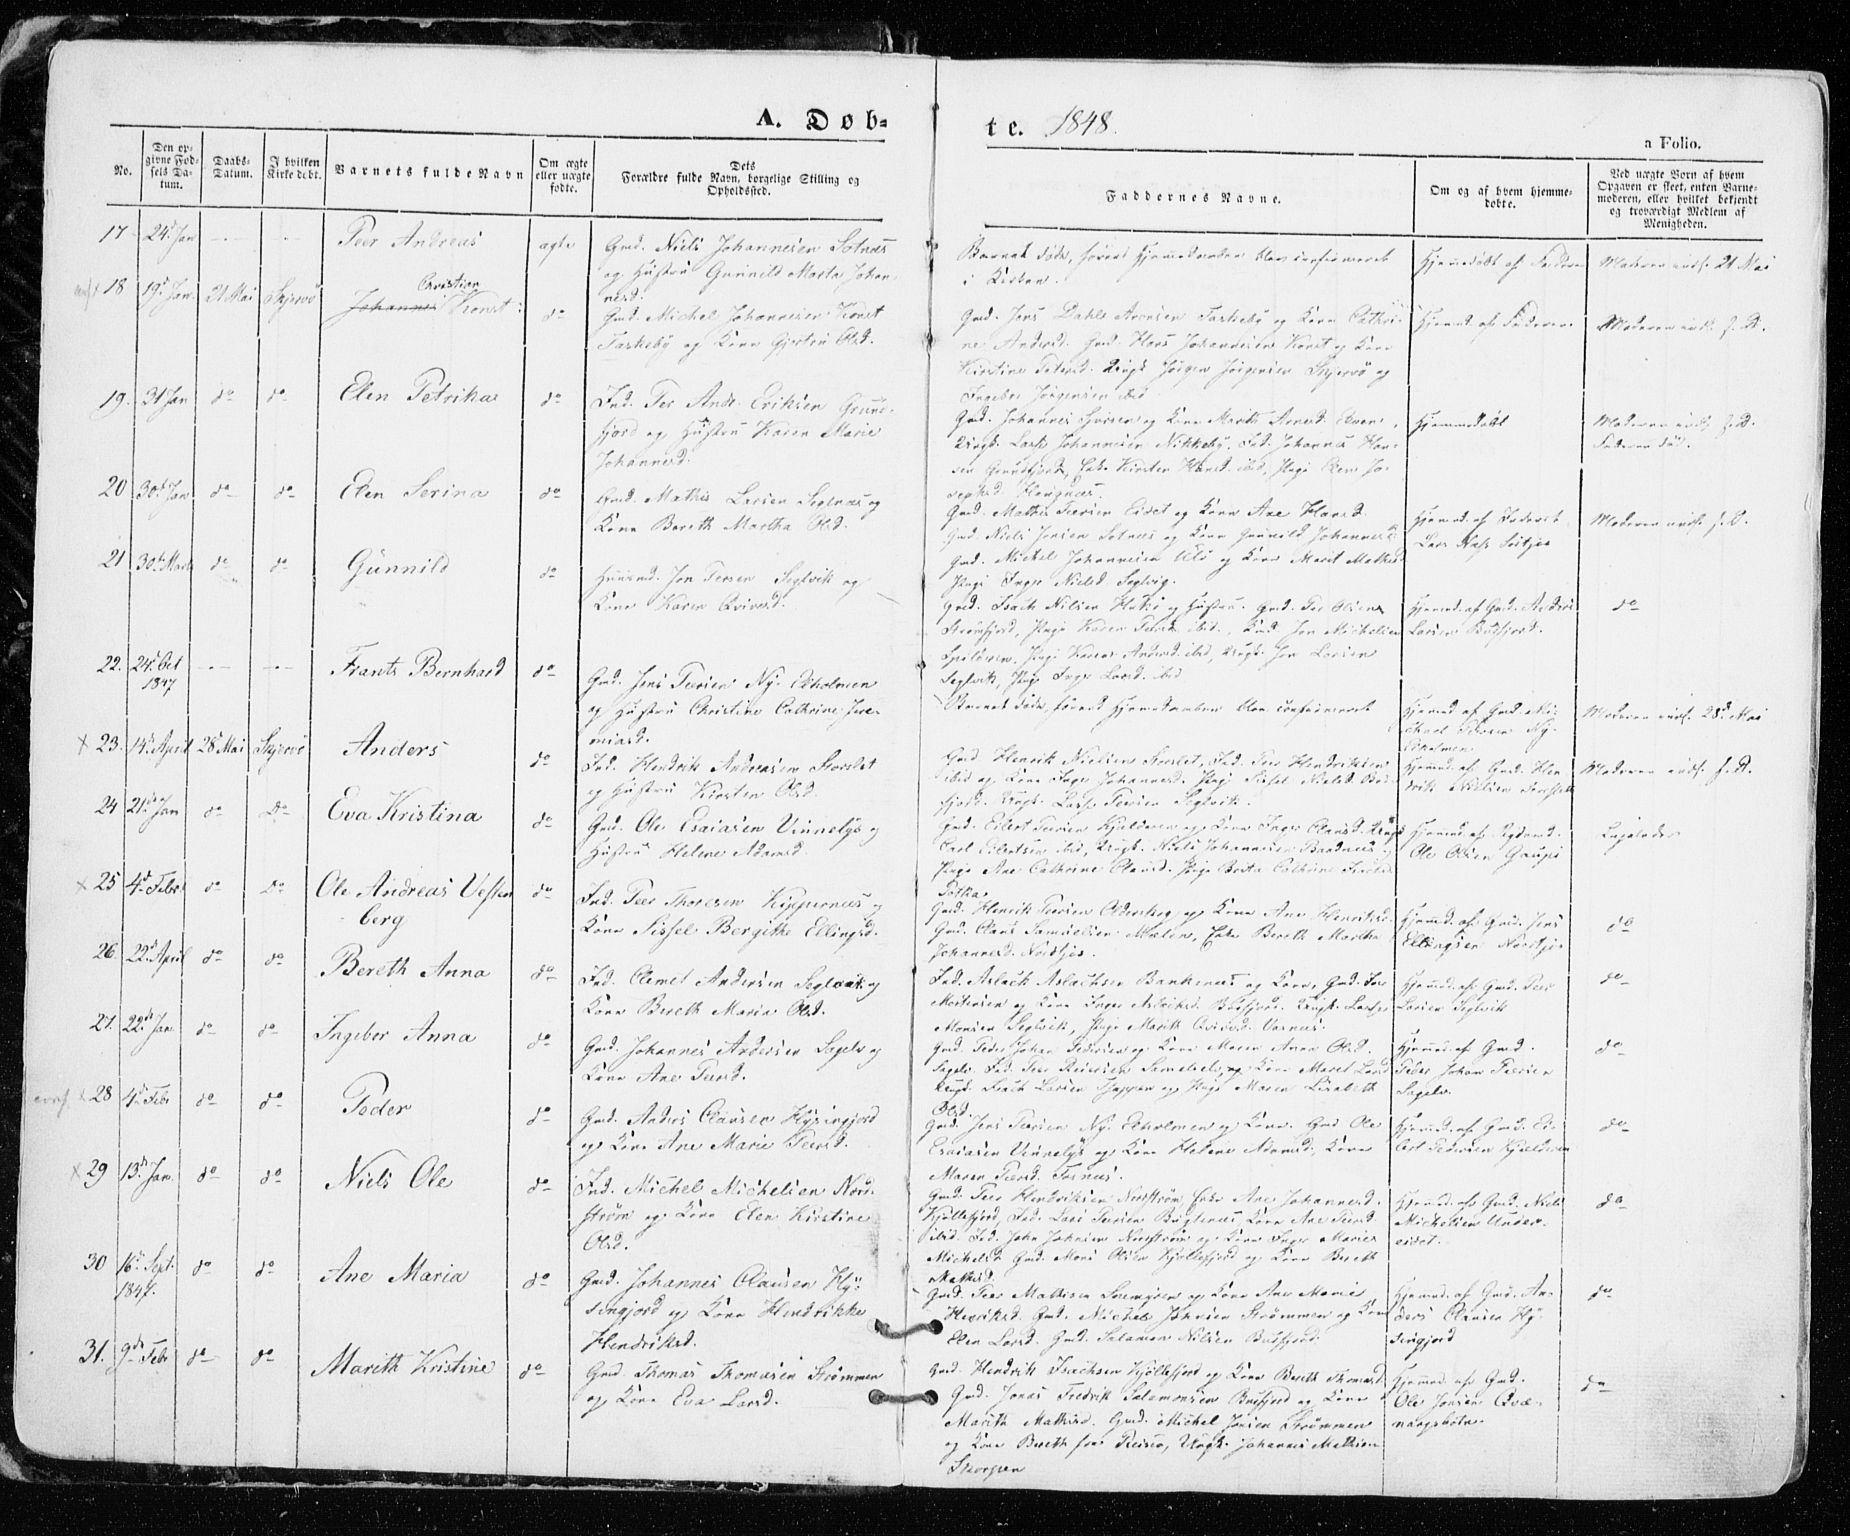 A. Døb-
te. 1848.
a Folio.
No.
Den op-
givne Fød-
sels Da-
tum.
Daabs-
Datum.
I hvilken
Kirke døbt.
Barnets fulde Navn
Om ægte
eller uægte
fødte.
Dets
Forældre fulde Navn, borgelige Stilling og
Opholdssted.
Faddernes Navne.
Om og af hvem hjemme-
døbte.
Ved uægte Born af hvem
Opgaven er skeet, enten Barne-
moderen, eller hvilket bekjendt
og troværdigt Medlem af
Menigheden.
17 24d Jan Peer Andreas ægte Gmd. Niels Johannesen Sotnæs
og Hustru Gunnild Marta Johan-
nesd.
Barnet døde, førend Hjemmedaaben blev confirmeret
i Kirken.
Hjemmedøbt af Faderen
Moderen inds. 21 Mai
18 19d Jan. 21 Mai Skjervø Christian
Johannes Konst do Gmd. Michel Johannesen Konst
Taskeby og Kone Gjertru Olsd.
Gmd. Jens Dahl Aronsen Taskeby og Kone Cathri-
ne Andersd. Gmd. Hans Johannesen Konst og Kone
Kirstine Petersd. Ungk. Jørgen Jørgensen Skjervø og
Ingebor Jørgensen ibid
Hjemmed. af Faderen
Moderen inds. s. D.
19. 31 Jan do do Elen Petrikae do Ind. Per And. Eriksen Grund-
fjord og Hustru Karen Marie
Johannesd.
Ungk. Lars Johannesen Nikkeby. Ind. Johannes Han-
sen Grundfjord, Enke Kirsten Hansd. ibid, Pige Elen Jo-
sephsd Haugnæs.
Hjemmedøbt
Moderen inds. s. D.
Faderen død.
20 30d Jan do do Elen Serina do Gmd. Mathis Larsen Seglnæs og
Kone Bereth Martha Olsd.
Gmd. Mathis Peersen Eidet og Kone Ane Hansd.
Gmd. Niels Jensen Sotnæs og Kone Gunnild Johannesd
Gmd. Michel Johannesen og Kone Marit Mathisd
Pige Inger Nielsd Seglvig.
Hjemmed. af
Moderen inds. s. D.
21 30d Marts do do Gunnild do Huusmd. Jon Persen Seglvik og
Kone Karen Qvivesd.
Gmd. Isach Nilsen og Hustru. Gmd. Peer Olsen
Strømfjord, Pige Karen Peersd ibid, Gmd. Jon Michelsen
Spilderen, Pige Karen Andersd ibid, Ungk. Jon Larsen
Seglvik, Pige Inger Larsd. ibid
Hjemmed. af Gmd. Anders
Larsen Burfjord.
do
22. 24d Oct
1847 Frants Bernhard do Gmd. Jens Peersen Ny-Ekholmen
og Hustru Christine Cathrine Jere-
miasd.
Barnet døde, førend Hjemmedaaben blev confirmeret
Hjemmed. af Gmd. Mi-
chael Peersen Ny-
Ekholmen
Moderen inds. 28d Mai
23. 14d April 28d Mai Skjervø Anders do Ind. Hendrik Andreasen Storslet
og Hustru Kirsten Olsd
Gmd. Henrik Nielsen Storslet, Ind. Peer Hendriksen
ibid og Kone Inger Johannesd. Pige Sissel Nielsd Bur-
fjord. Ungk. Lars Peersen Seglvik.
Hjemmed. af Gmd. Hen-
drik Nielsen Storslet
Moderen inds. s. D.
24 21de Jan do Do Eva Kristina do Gmd. Ole Esaiasen Vinnelys og
Hustru Helene Adamsd.
Gmd. Eilert Peersen Kjelderen og Kone Inger Clausd. Ungk
Carl Eilertsen ibid, Ungk. Niels Johannesen Baadnæs,
Pige Ane Cathrine Olausd. Pige Berta Cathrine
Hjemmed. af
Ole Olsen Gaupi
25 4d Febr do Do Ole Andreas Vesten
berg do Ind. Peer Thoresen Kippernæs og
Kone Sissel Bergithe Ellingsd.
Gmd. Henrik Peersen Olderskog og Kone Ane Henriksd.
Gmd. Claus Samuelsen Maelen, Enke Bereth Martha
Johannesd. Nordstjos.
Hjemmed. af Gmd. Jens
Ellingsen
do
26. 22d April do do Bereth Anna do Ind. Clemet Andersen Seglvik og
Kone Bereth Maria Olsd.
Ind. Aslack Aslachsen Bankenæs og Kone, Gmd. Peer
Mortensen og Kone Inger Aslaksd. Burfjord. Ungk. Lars
Monsen Seglvik, Pige Marith Qvivesd. Vasnæs.
Hjemmed. af Gmd. Peer
Larsen Seglvik
do
27. 22de Jan. do do Ingebor Anna do Gmd. Johannes Andersen Sagelv og
Kone Ane Peersd.
Gmd. Peder Johan Pedersen og Kone Maren Anna Olsd.
Sagelv. Ind. Peer og Kone Maret Larsd
Ungk. Isach Larsen og Pige Maren Lisabeth
Olsd.
Hjemmed. af Gmd.
Peder Johan Peersen
Sagelv.
do
28 4d Febr do do Peder do Gmd. Anders Clausen Hysingjord
og Kone Ane Marie Peersd.
Gmd. Jens Peersen Ny-Ekholmen og Kone. Gmd Ole
Esaiasen Vinnelys og Kone Helene Adamsd. Kone
Maren Peersd.
Hjemmed. af Gmd. Ei-
lert Pedersen Kjelderen
do
29 13d Jan. do do Niels Ole do Ind. Michel Michelsen Nord-
strøm og Kone Elen Kirstine
Olsd.
Gmd. Peer Hendriksen Nordstrøm, Enke Ane Johannesd.
Kjøllefjord, Ind. Lars Peersen og Kone Ane Peersd
ibid. Ind. John Johnsen Nordstrøm og Kone Inger Marie
Michelsd. Gmd. Mons Olsen Kjøllefjord og Kone Bereth
Mathisd.
Hjemmed. af Gmd. Niels
Michelsen Under-
eidet.
do
30 16d Sept.
1847. do do Ane Maria do Gmd. Johannes Clausen Hy-
singjord og Kone Hendrikke
Hendriksd.
Gmd. Peer Mathisen og Kone Ane Marie
Henriksd. Gmd. Michel Johnsen Strømmen og Kone
Elen Larsd. Gmd. Salamon Nilsen Burfjord.
Hjemmed. af Gmd. An-
ders Clausen Hy-
singjord
do
31. 9de Febr do do Marith Kristine do Gmd Thomas Thomasen Strømmen
og Kone Eva Larsd.
Gmd. Hendrik Isachsen Kjøllefjord og Kone Bereth Thomasd.
Gmd. Jonas Fredrik Salamonsen Burfjord og Kone
Marith Mathisd. Gmd. Michel Jonsen Strømmen
og Kone Bereth fra Reisen, Ungk. Johannes Mathisen
Skorpen
Hjemmed. af Gmd.
Ole Jensen Qvæ-
nangsbotn.
do